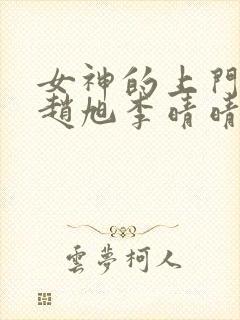 女神的上門
趙旭李晴晴
雲夢柯人